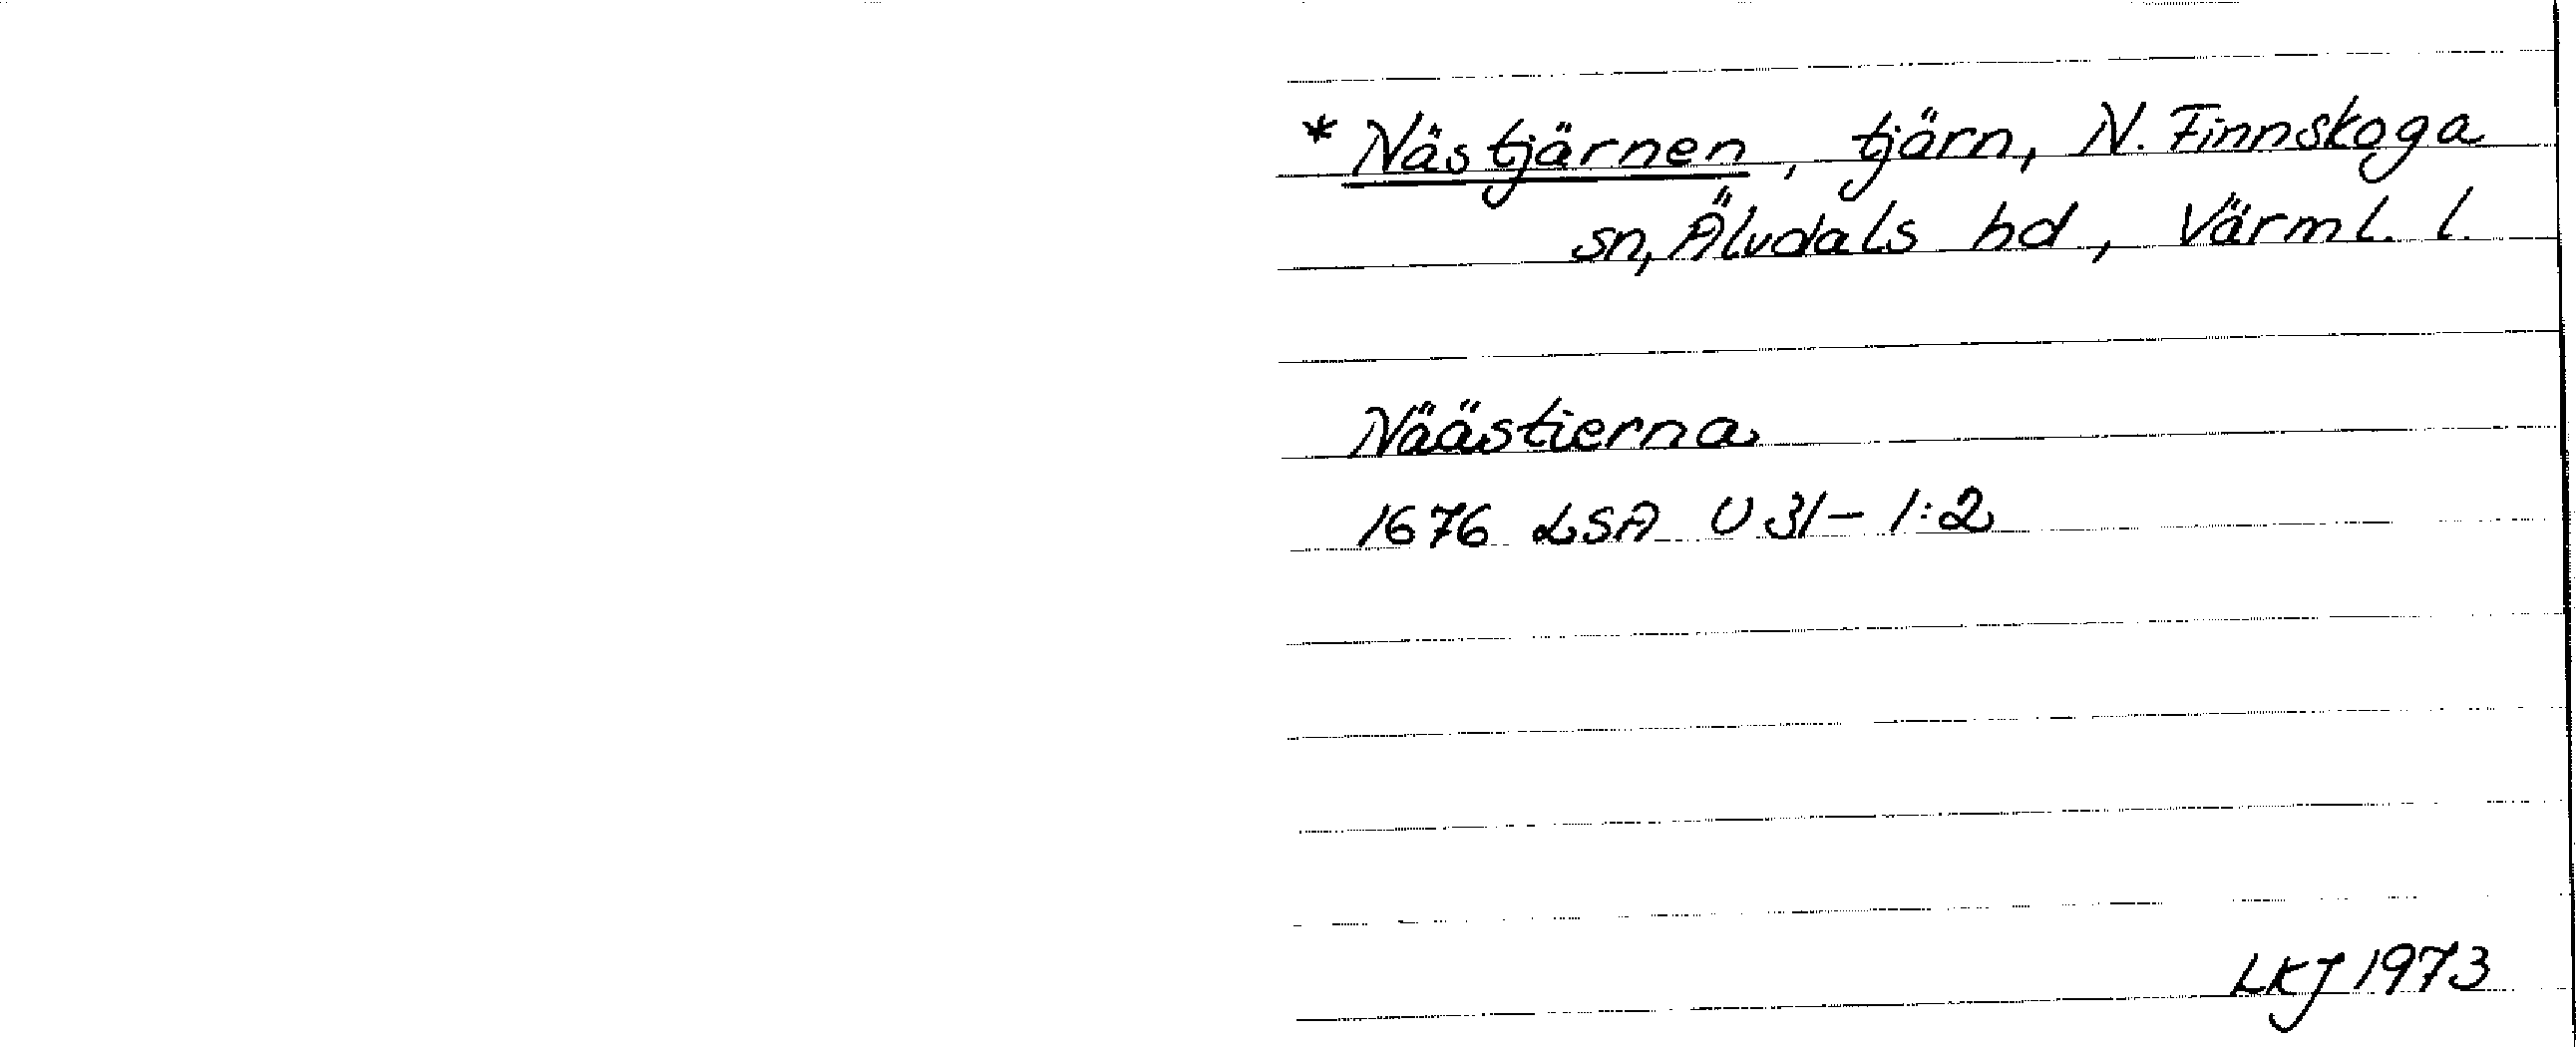 * Nästjärnen, tjärn, N. Finnskoga
sn, Älvdals hd, Värml. l.
Näästierna
1676 LSA U 31-1:2
LKJ 1973